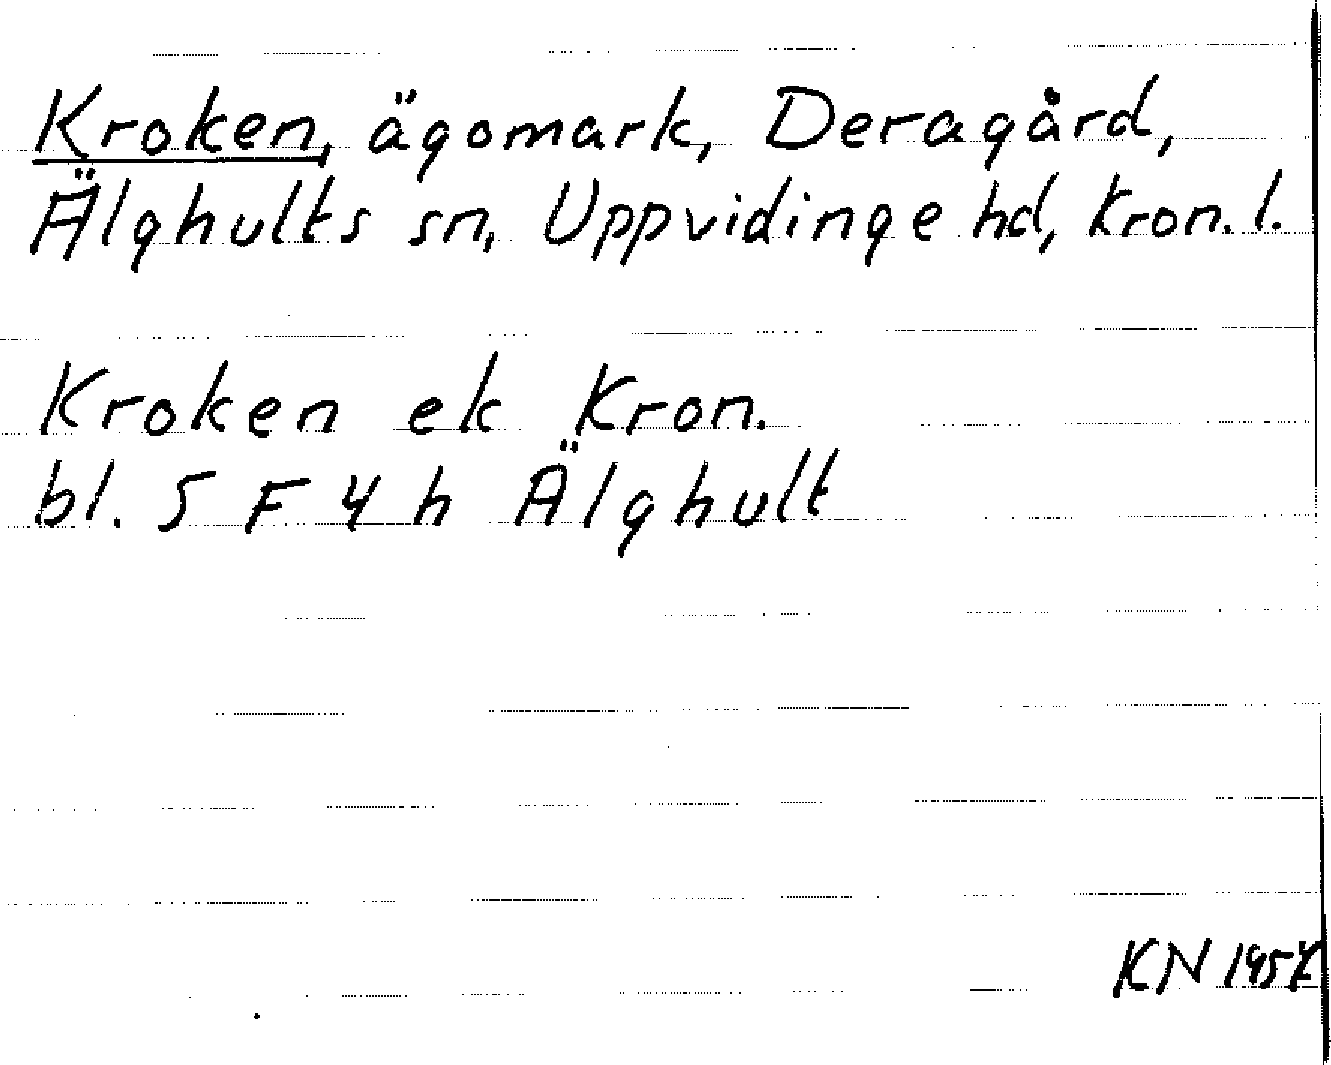 Kroken, ägomark, Deragård,
Älghults sn, Uppvidinge hd, Kron. l.
Kroken ek Kron.
bl. 5 F 4 h Älghult
KN